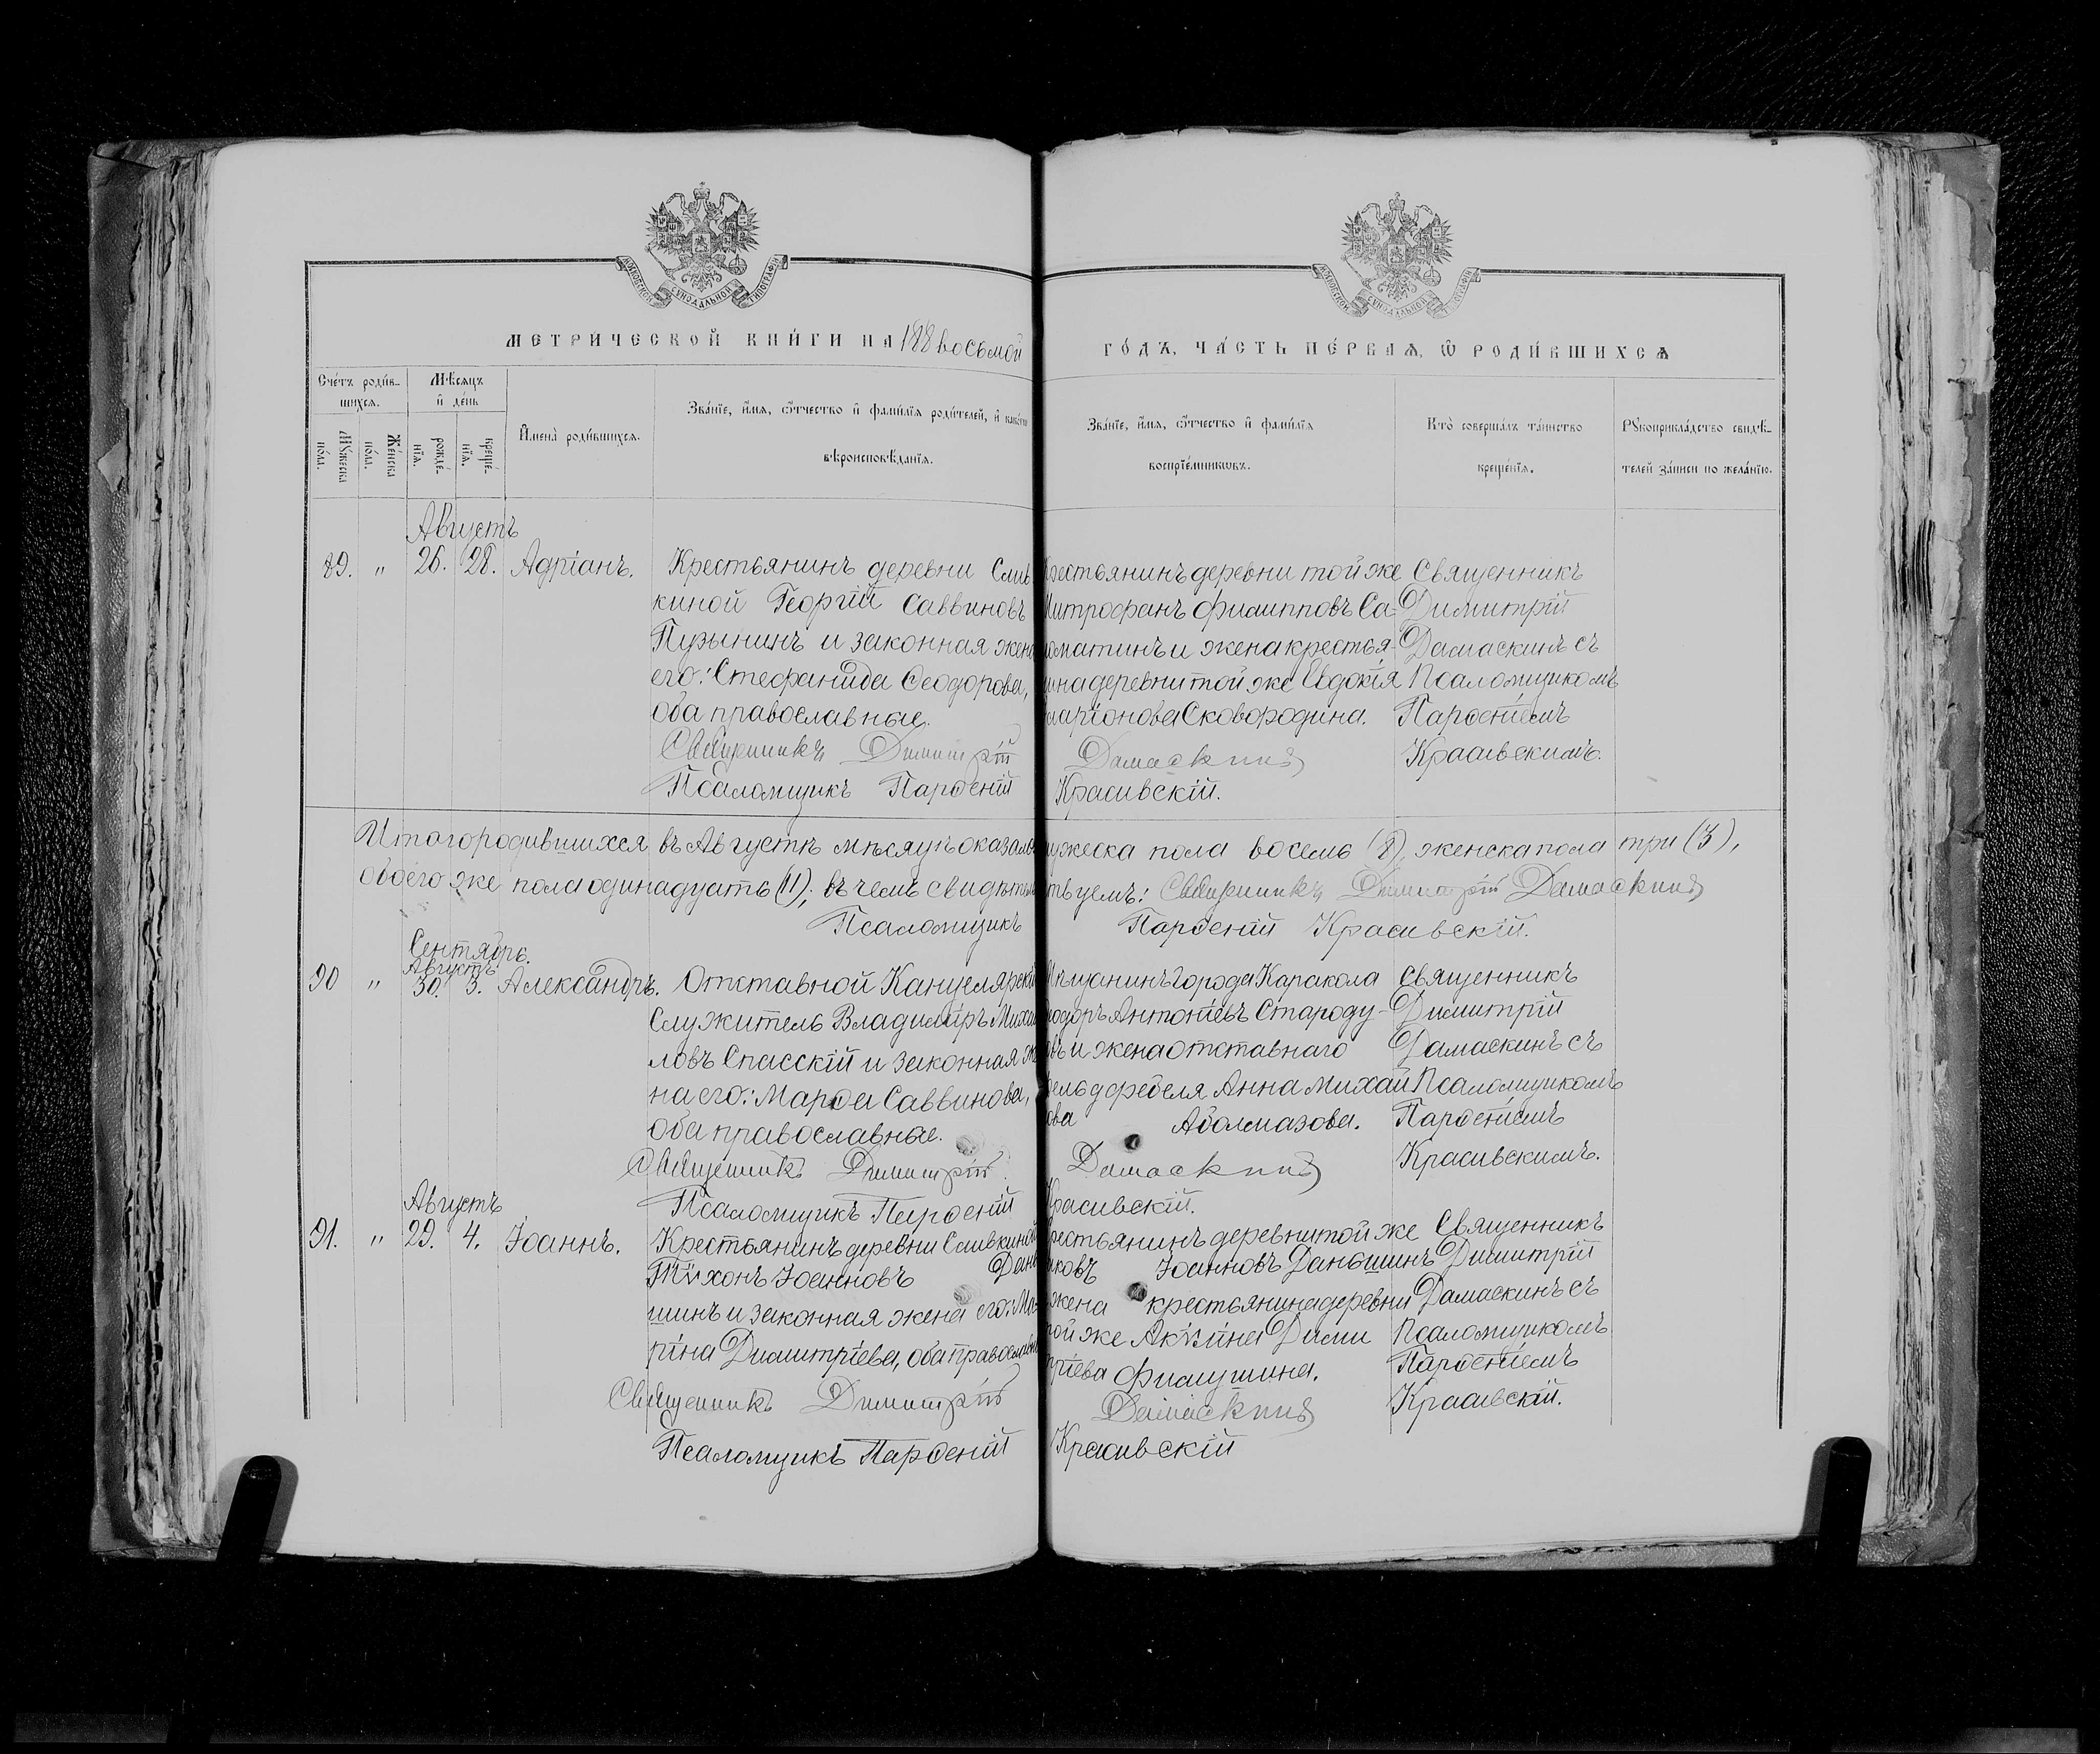 МОСКОВСКОЙ СѴНОДАЛЬНОЙ ТИПОГРАФІИ
МОСКОВСКОЙ СѴНОДАЛЬНОЙ ТИПОГРАФІИ
МЕТРИ́ЧЕСКОЙ КНИ́ГИ НА 188 восьмой
ГО́ДЪ, ЧА́СТЬ ПЕ́РВАѦ, Ѿ РОДИ́ВШИХСѦ
Сче́тъ роди́в-
шихсѧ.
Мѣ́сѧцъ
и҆ де́нь
Мꙋ́жеска
по́ла.
Же́нска
по́ла.
рожде́-
нїѧ.
креще́-
нїѧ.
И҆мена̀ роди́вшихсѧ.
Зва́нїе, и҆́мѧ, ѻ҆́тчество и҆ фами́лїѧ роди́телей, и҆ како́гѡ
вѣроисповѣ́данїѧ.
Зва́нїе, и҆́мѧ, ѻ҆́тчество и҆ фами́лїѧ
воспрїе́мникѡвъ.
Кто̀ соверша́лъ та́инство
креще́нїѧ.
Рꙋкоприкла́дство свидѣ́-
телей за́писи по жела́нїю.
Августъ
89. „ 26. 28. Адріанъ. Крестьянинъ деревни Слив
киной Георгій Саввиновъ
Пузынинъ и законная жена
его: Стефанида Ѳеодорова,
оба православные.
Священникъ Димитрій
Псаломщикъ Парѳеній
Крестьянинъ деревни той же
Митрофанъ Филипповъ Са-
матинъ и жена крестья-
нина деревни той же Евдокія
ларіонова Сковородина.
Дамаскинъ
Красивскій.
Священникъ
Димитрій
Дамаскинъ съ
Псаломщикомъ
Парѳеніемъ
Красивскимъ.
Итого родившихся въ Августѣ мѣсяцѣ оказалось мужеска пола восемь (8), женска пола три (3),
обоего же пола одинадцать (11); въ чемъ свидѣтельствуемъ: Священникъ Димитрій Дамаскинъ
Псаломщикъ Парѳеній Красивскій.
Сентябрь.
Августъ
90 „ 30. 3. Александръ. Отставной Канцелярскій
Служитель Владиміръ Михаи
ловъ Спасскій и законная же
на его: Марѳа Саввинова,
оба православные.
Священникъ Димитрій
Псаломщикъ Парѳеній
Мѣщанинъ города Каракола
Ѳеодоръ Антоніевъ Староду-
въ и жена отставнаго
фельдфебеля Анна Михай
ова Аболмазова.
Дамаскинъ
Красивскій.
Священникъ
Димитрій
Дамаскинъ съ
Псаломщикомъ
Парѳеніемъ
Красивскимъ.
Августъ
91. „ 29. 4. Іоаннъ. Крестьянинъ деревни Сливкиной
Тѵхонъ Іоанновъ Дань
шинъ и законная жена его: Ма
рина Димитріева, оба православные
Священникъ Димитрій
Псаломщикъ Парѳеній
Крестьянинъ деревни той же
ковъ Іоанновъ Даньшинъ
жена крестьянина деревни
той же Акѵлина Дими
тріева Филушина.
Дамаскинъ
Красивскій
Священникъ
Димитрій
Дамаскинъ съ
Псаломщикомъ
Парѳеніемъ
Красивскій.